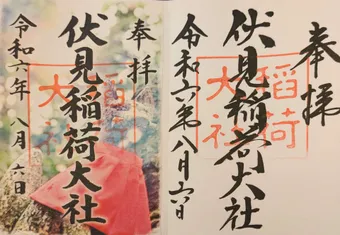 奉拝
稲荷
大社
伏見稲荷大社
令和六年八月六日
奉拝
伏見稲荷大社
令和六年 八月 六日